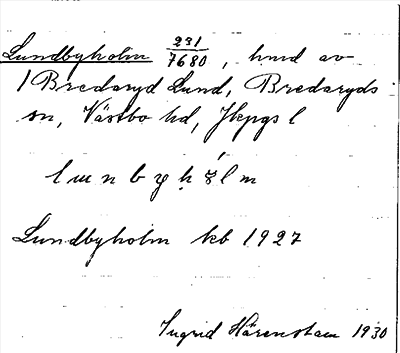 Lundbyholm 231/7680, hmd av
1 Bredaryd Lund, Bredaryds
sn, Västbo hd, Jkpgs l
Lundbyholm kb 1927
Ingrid Hårenstam 1930